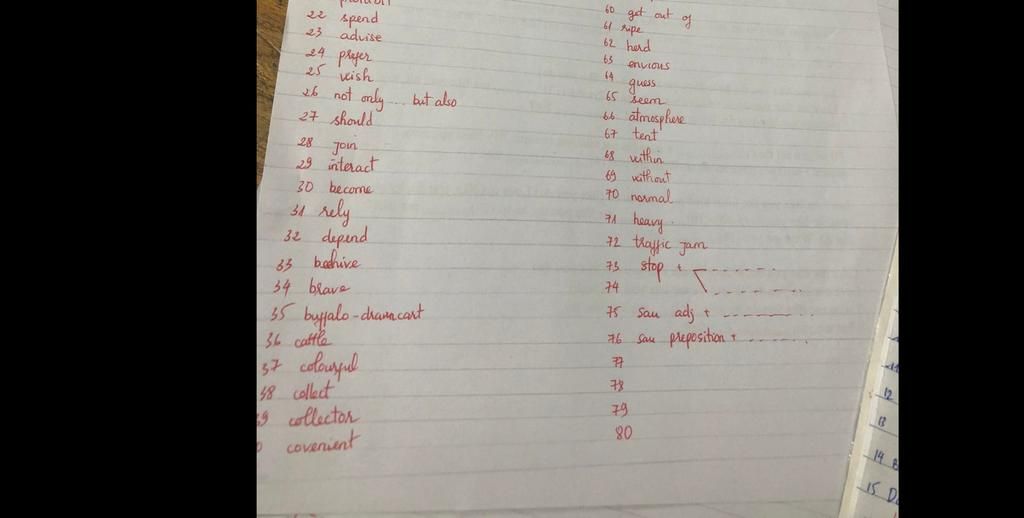 22 spend
23 advise
24 prefer
25 wish
26 not only ... but also
27 should
28 join
29 interact
30 become
31 rely
32 depend
33 beehive
34 brave
35 buffalo-drawn cart
36 cattle
37 colourful
38 collect
39 collector
0 covenient
60 get out of
61 ripe
62 herd
63 envious
64 guess
65 seem
66 atmosphere
67 tent
68 within
69 without
70 normal
71 heavy
72 traffic jam
73 stop +
74
75 sau adj +
76 sau preposition +
77
78
79
80
12
13
14
15